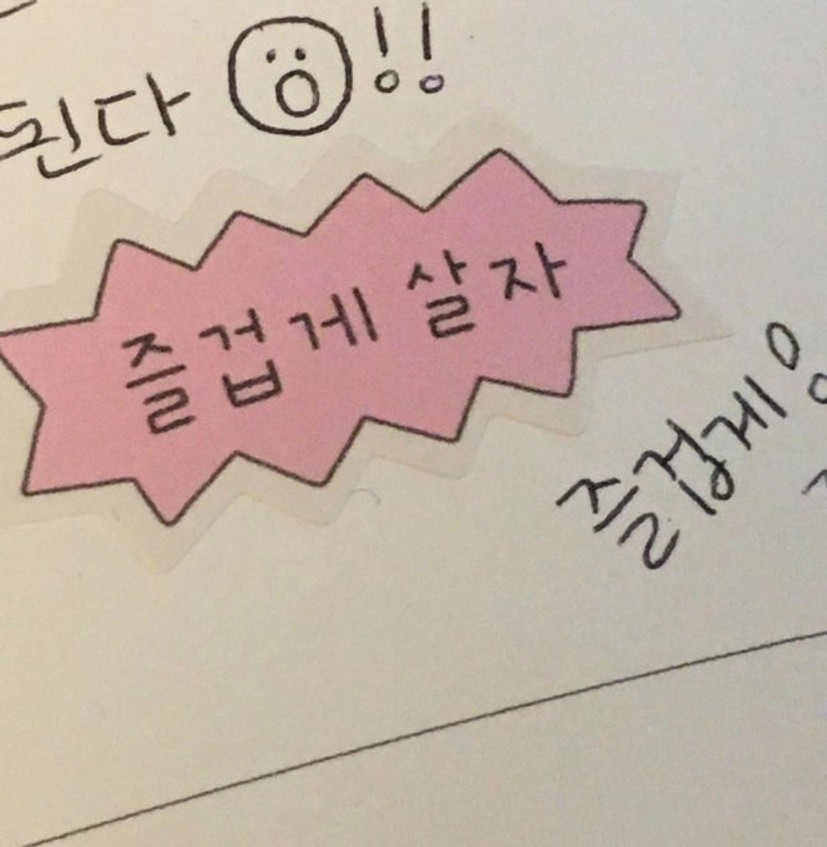 된다 !!
즐겁게 살자
즐겁게